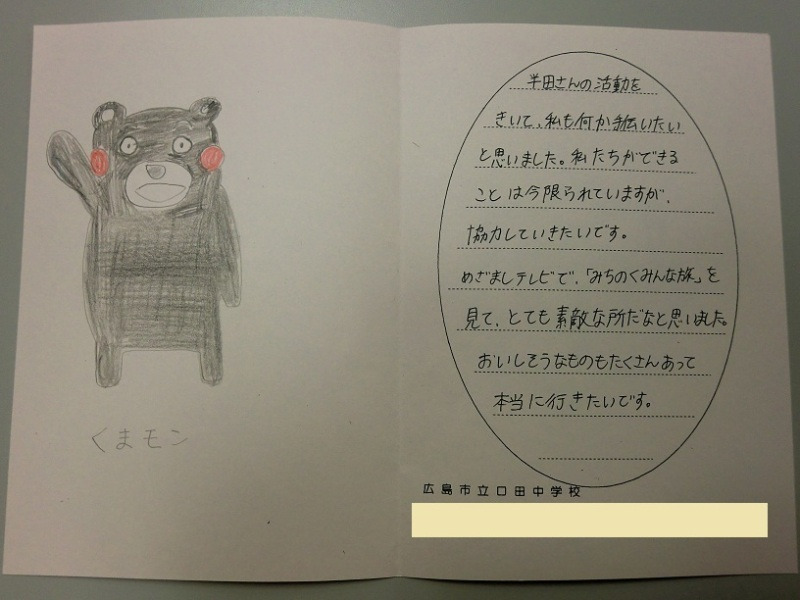 くまモン
半田さんの活動を
きいて、私も何か手伝いたい
と思いました。私たちができる
ことは今限られていますが、
協力していきたいです。
めざましテレビで、「みちのくみんな旅」を
見て、とても素敵な所だなと思いました。
おいしそうなものもたくさんあって
本当に行きたいです。
広島市立口田中学校